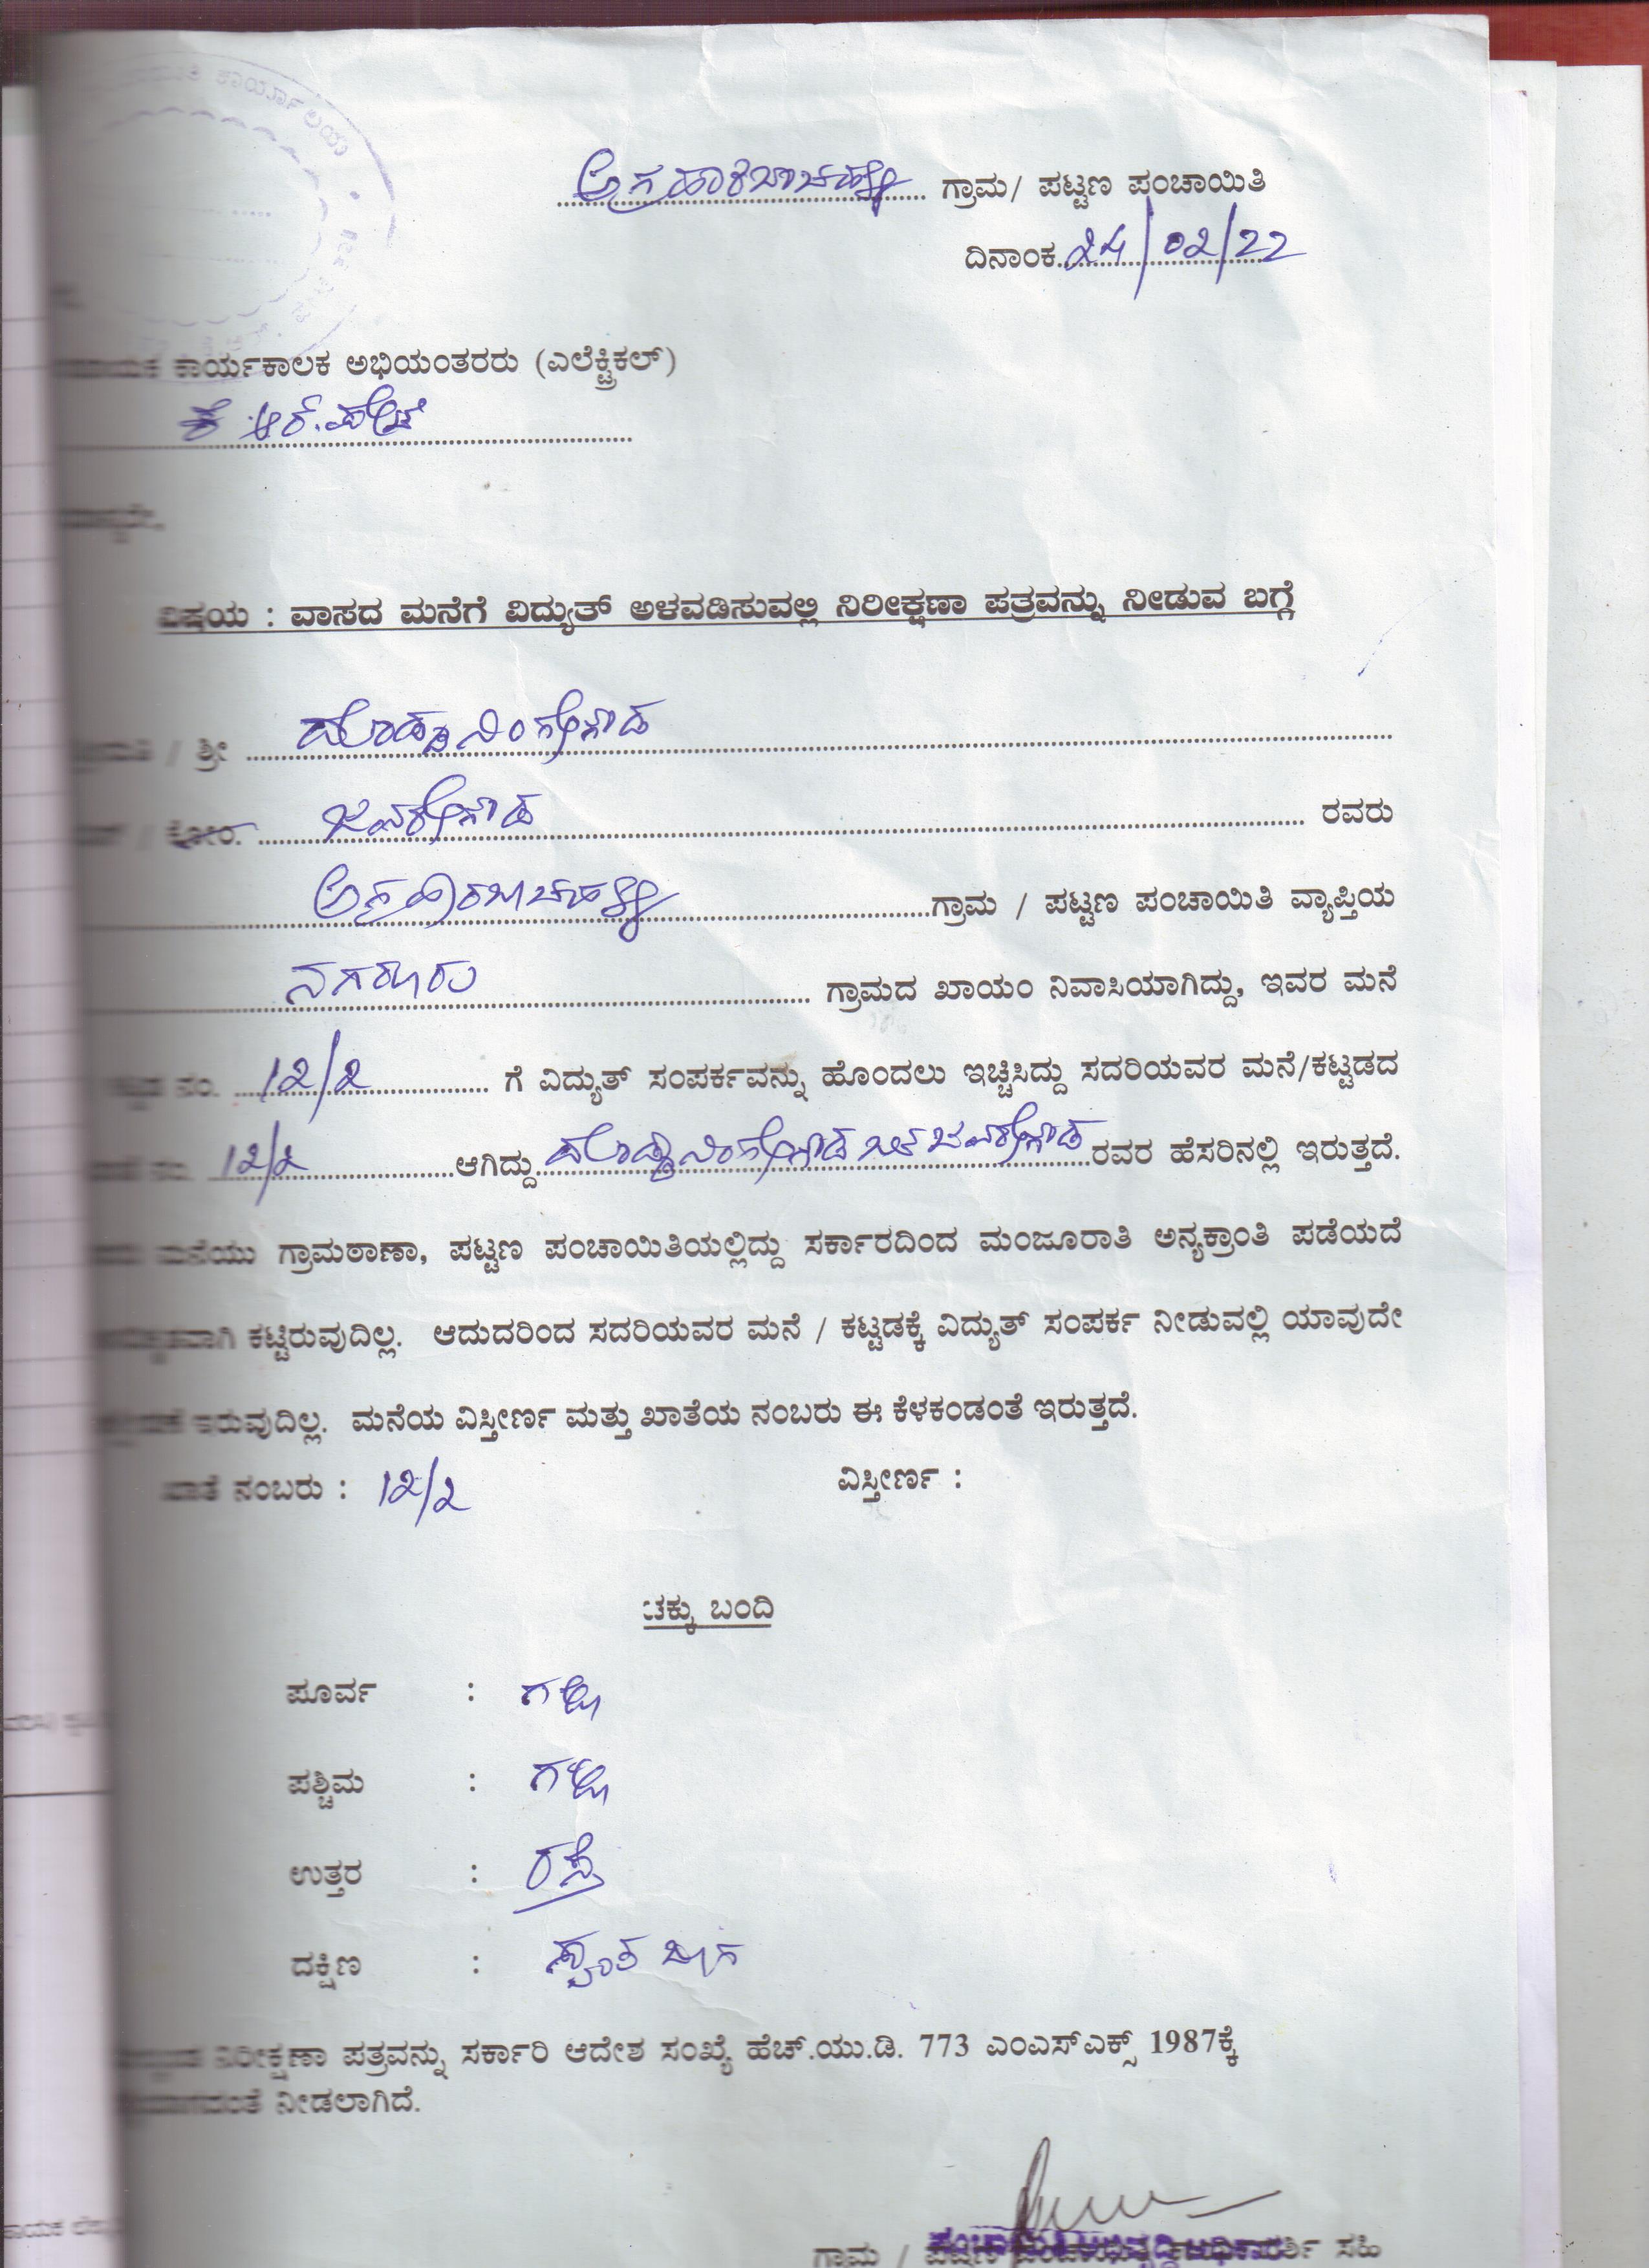 ಕಾರ್ಯಾಲಯ
ಅಗ್ರಹಾರಬಾಚಹಳ್ಳಿ ಗ್ರಾಮ/ ಪಟ್ಟಣ ಪಂಚಾಯಿತಿ
ದಿನಾಂಕ 24/02/22
ಕಾರ್ಯಕಾಲಕ ಅಭಿಯಂತರರು (ಎಲೆಕ್ಟ್ರಿಕಲ್)
ಕೆ ಆರ್.ಪೇಟೆ
ವಿಷಯ : ವಾಸದ ಮನೆಗೆ ವಿದ್ಯುತ್ ಅಳವಡಿಸುವಲ್ಲಿ ನಿರೀಕ್ಷಣಾ ಪತ್ರವನ್ನು ನೀಡುವ ಬಗ್ಗೆ
/ ಶ್ರೀ ದೊಡ್ಡನಿಂಗೇಗೌಡ
/ ಕೋಂ. ಜವರೇಗೌಡ ರವರು
ಅಗ್ರಹಾರಬಾಚಹಳ್ಳಿ ಗ್ರಾಮ / ಪಟ್ಟಣ ಪಂಚಾಯಿತಿ ವ್ಯಾಪ್ತಿಯ
ನಗರೂರು ಗ್ರಾಮದ ಖಾಯಂ ನಿವಾಸಿಯಾಗಿದ್ದು, ಇವರ ಮನೆ
ನಂ. 12/2 ಗೆ ವಿದ್ಯುತ್ ಸಂಪರ್ಕವನ್ನು ಹೊಂದಲು ಇಚ್ಚಿಸಿದ್ದು ಸದರಿಯವರ ಮನೆ/ಕಟ್ಟಡದ
ನಂ. 12/2 ಆಗಿದ್ದು ದೊಡ್ಡನಿಂಗೇಗೌಡ ಬಿನ್ ಜವರೇಗೌಡ ರವರ ಹೆಸರಿನಲ್ಲಿ ಇರುತ್ತದೆ.
ಮನೆಯು ಗ್ರಾಮಠಾಣಾ, ಪಟ್ಟಣ ಪಂಚಾಯಿತಿಯಲ್ಲಿದ್ದು ಸರ್ಕಾರದಿಂದ ಮಂಜೂರಾತಿ ಅನ್ಯಕ್ರಾಂತಿ ಪಡೆಯದೆ
ಕಟ್ಟಿರುವುದಿಲ್ಲ. ಆದುದರಿಂದ ಸದರಿಯವರ ಮನೆ / ಕಟ್ಟಡಕ್ಕೆ ವಿದ್ಯುತ್ ಸಂಪರ್ಕ ನೀಡುವಲ್ಲಿ ಯಾವುದೇ
ಇರುವುದಿಲ್ಲ. ಮನೆಯ ವಿಸ್ತೀರ್ಣ ಮತ್ತು ಖಾತೆಯ ನಂಬರು ಈ ಕೆಳಕಂಡಂತೆ ಇರುತ್ತದೆ.
ಖಾತೆ ನಂಬರು : 12/2 ವಿಸ್ತೀರ್ಣ :
ಚಕ್ಕು ಬಂದಿ
ಪೂರ್ವ : ಗಲ್ಲಿ
ಪಶ್ಚಿಮ : ಗಲ್ಲಿ
ಉತ್ತರ : ರಸ್ತೆ
ದಕ್ಷಿಣ : ಸ್ವಂತ ಜಾಗ
ನಿರೀಕ್ಷಣಾ ಪತ್ರವನ್ನು ಸರ್ಕಾರಿ ಆದೇಶ ಸಂಖ್ಯೆ ಹೆಚ್.ಯು.ಡಿ. 773 ಎಂಎಸ್ಎಕ್ಸ್ 1987ಕ್ಕೆ
ನೀಡಲಾಗಿದೆ.
ಗ್ರಾಮ / ಸಹಿ